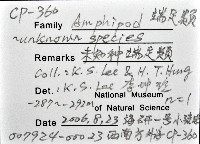 CP-360
Family Amphipod 端足類
~unknown species
Remarks 未知种端足類
Coll.: K.S. Lee & H.T. Hung
Det.: K.S. Lee 李坤瑄
-287~-292m National Museum of Natural Science n=1
Date 2006.8.23
007924-00023